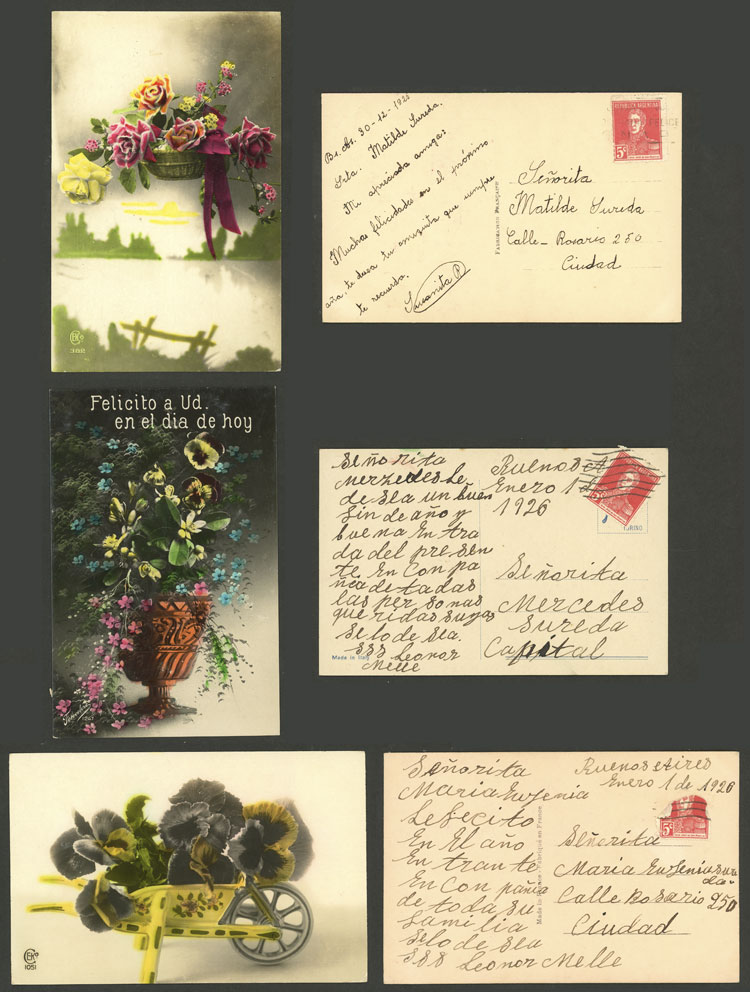 388
Bs. As. 30-12-1926
Srta. Matilde Sureda.
Mi apreciada amiga:
Muchas felicidades en el próximo
año, te desea tu amiguita que siempre
te recuerda.
Susanita R
FABRICATION FRANÇAISE
REPUBLICA ARGENTINA
5c
Señorita
Matilde Sureda
Calle-Rosario 250
Ciudad
Felicito a Ud.
en el dia de hoy
Señorita
Merzedes Le
de sea un buen
fin de año y
buena En tra
da del pre sen
te En Con pa
ñea de todas
las per sonas
que ridas suyas
Se lo de sea.
SSS Leonor
Melle
Made in Italy
Buenos A
Enero 1 d
1926
5c
TORINO
Señorita
Mercedes
Sureda
Capital
1051
Señorita
Maria Eugenia
Le felicito
En El año
En tran te
En Con pañia
de toda su
familia
Se lo de sea
SSS Leonor Melle
Fabriqué en France
Buenos Aires
Enero 1 de 1926
5c
Señorita
Maria Eugenia Sure
da
Calle Rosario 250
Ciudad